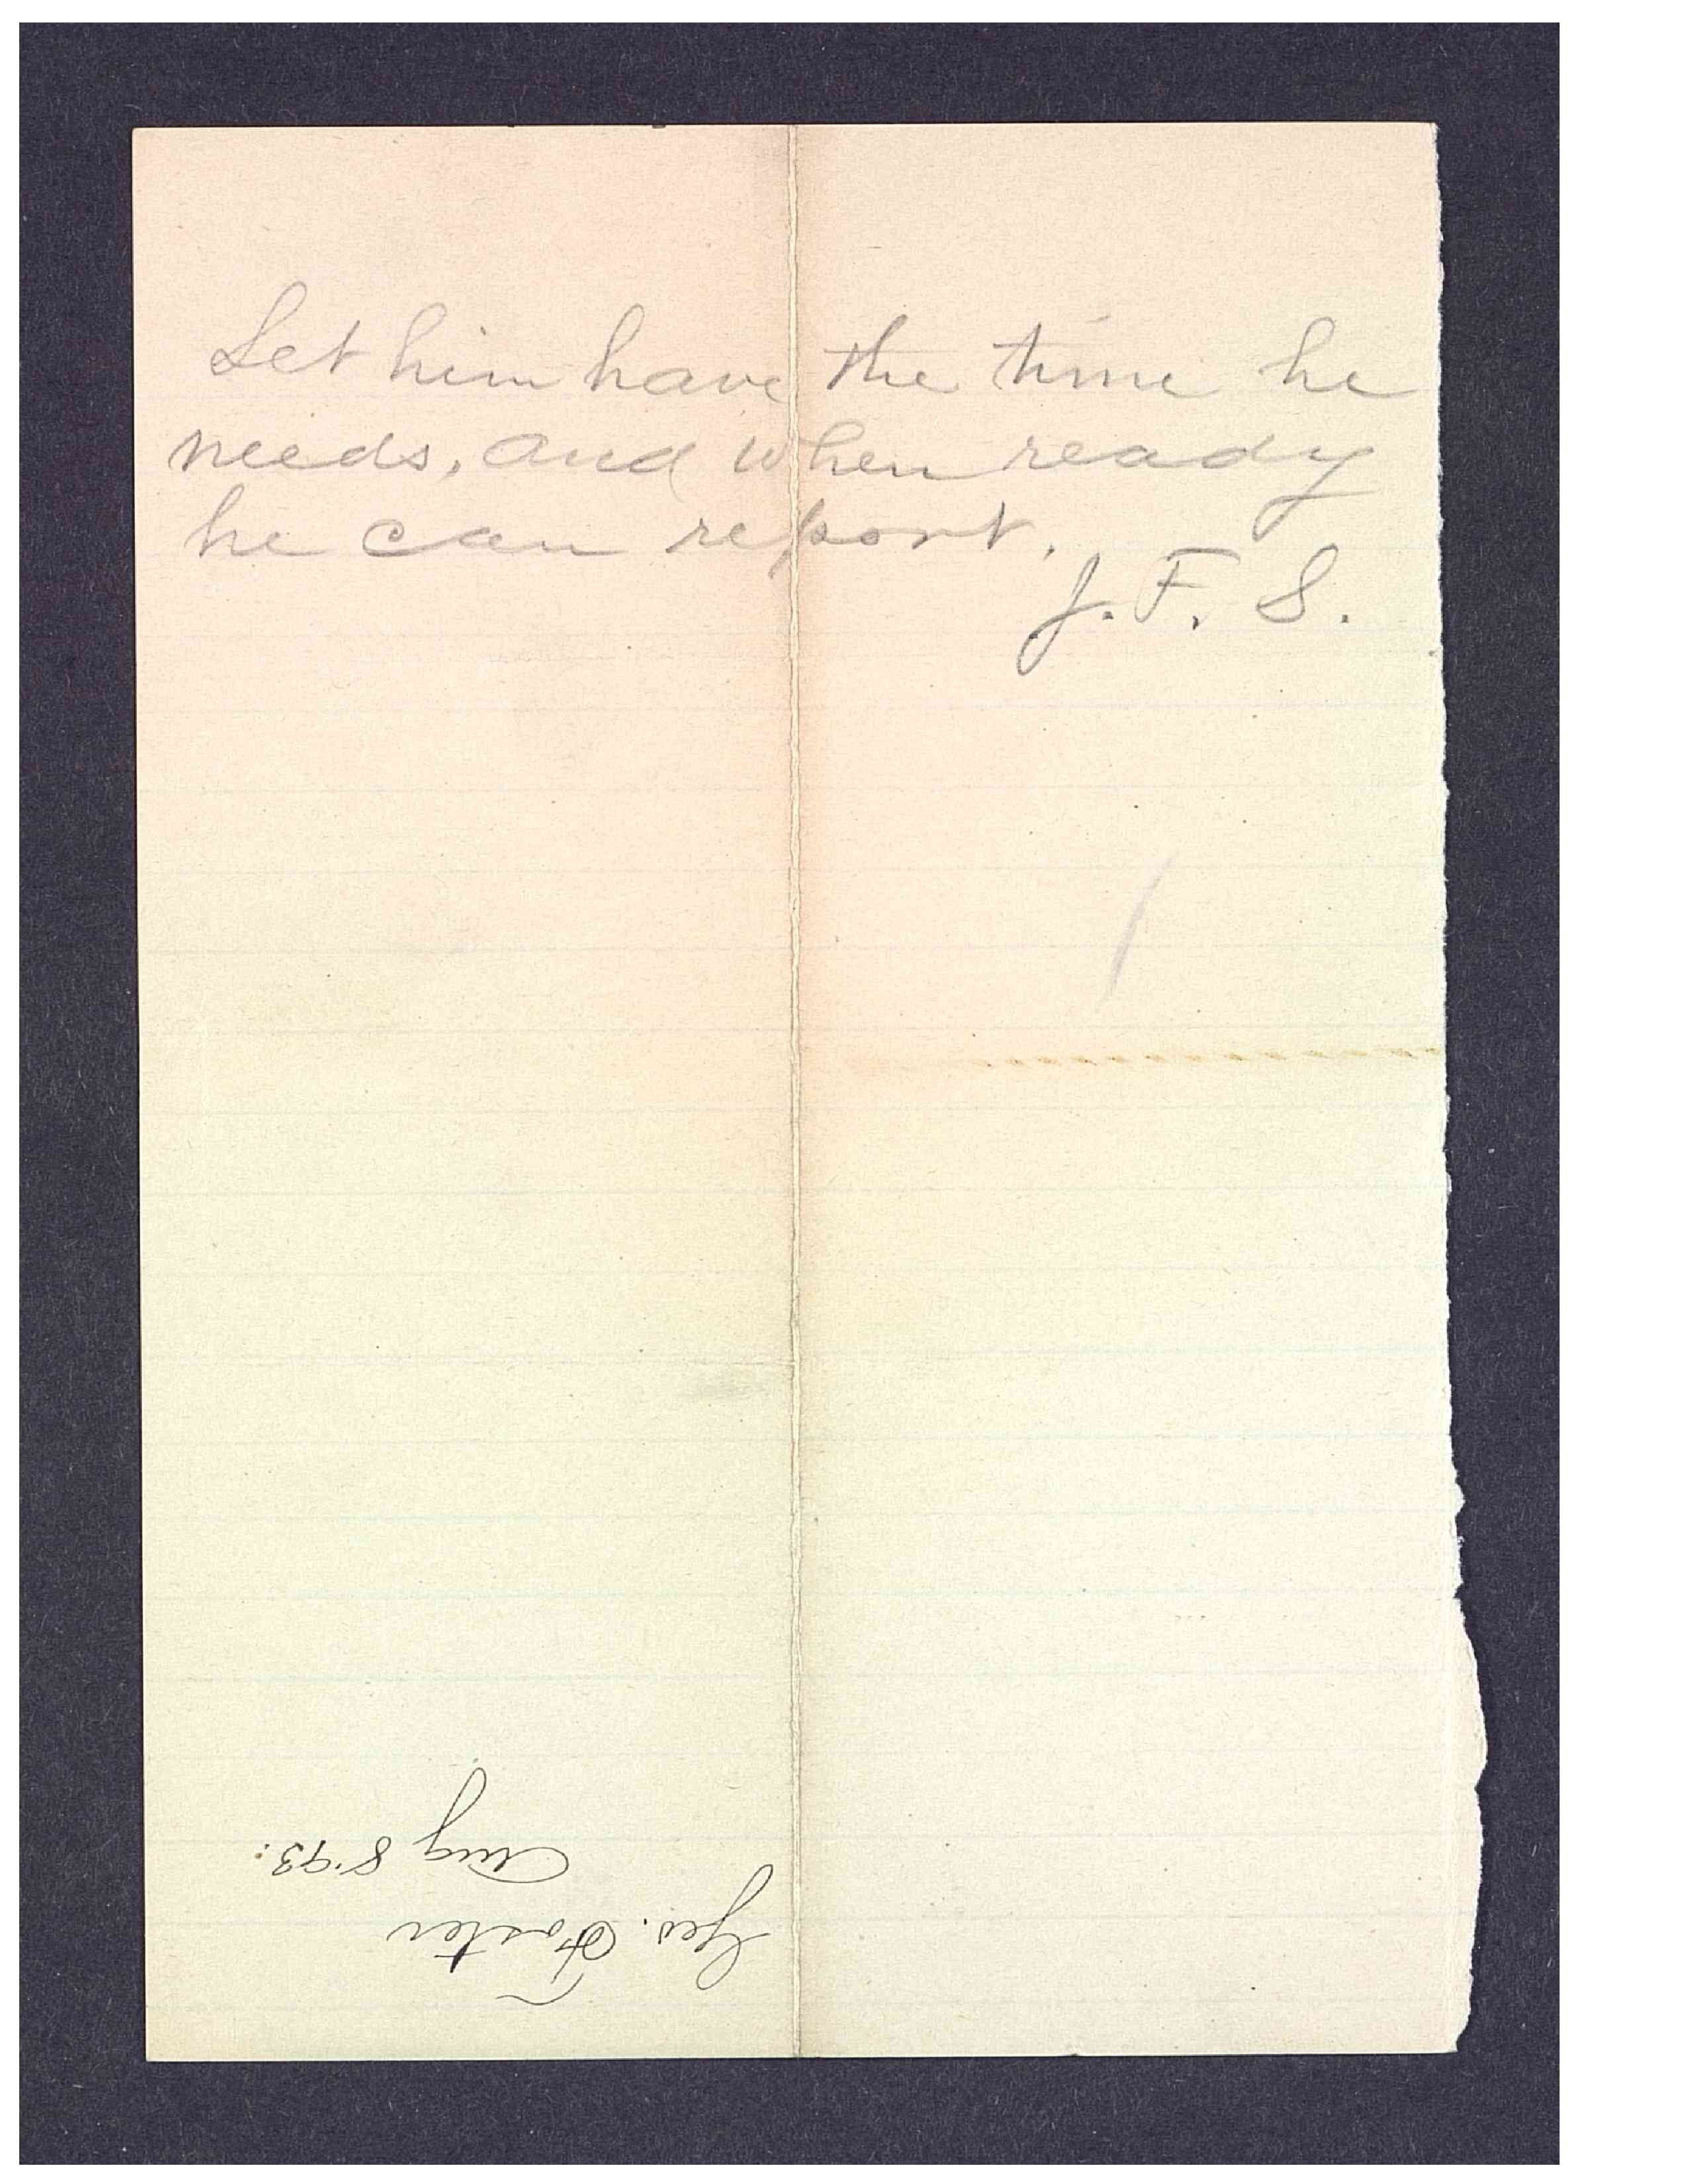 Let him have the time he
needs, and when ready
he can report.
J. F. S.
Geo. Foster
Aug 8 '93.